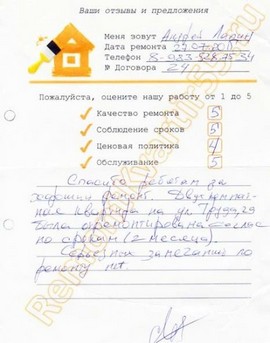 Ваши отзывы и предложения
Меня зовут Андрей Ларин
Дата ремонта
Телефон
№ Договора 24
Пожалуйста, оцените нашу работу от 1 до 5
Качество ремонта 5
Соблюдение сроков 5
Ценовая политика 4
Обслуживание 5
Спасибо ребятам за
хороший ремонт. Двухкомнат-
ная квартира на ул. Труда, 29
была отремонтирована
по срокам (2 месяца).
Серьезных замечаний по
ремонту нет.